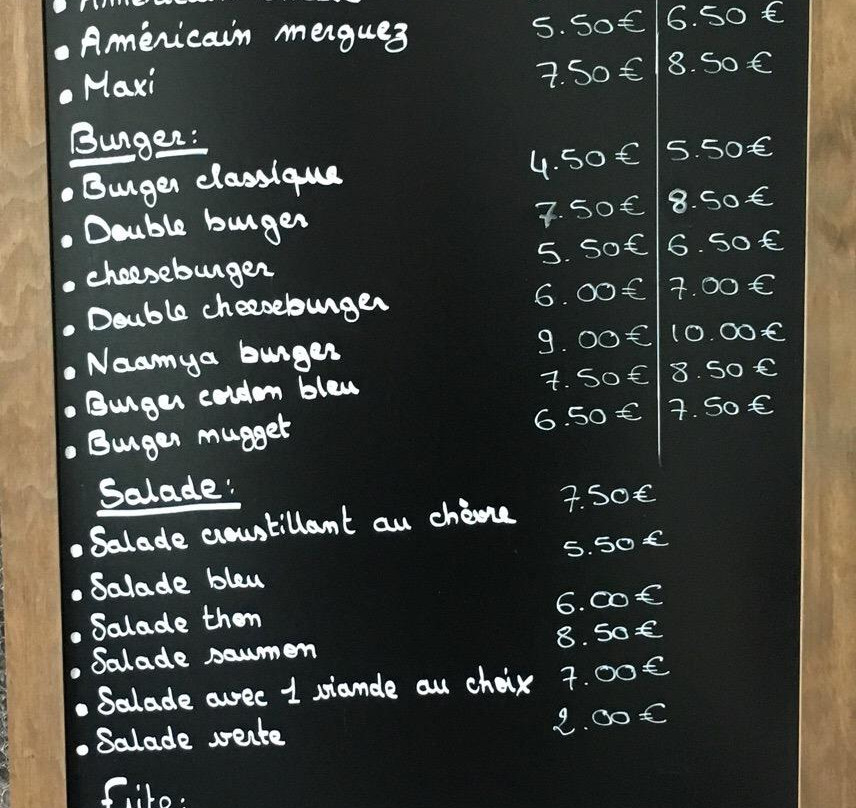 • Américain merguez 5.50€ 6.50 €
• Maxi 7.50 € 8.50 €
Burger:
• Burger classique 4.50 € 5.50€
• Double burger 7.50€ 8.50€
• cheeseburger 5.50€ 6.50€
• Double cheeseburger 6.00€ 7.00€
• Naamya burger 9.00€ 10.00€
• Burger cordon bleu 7.50€ 8.50€
• Burger nugget 6.50€ 7.50€
Salade:
• Salade croustillant au chèvre 7.50€
• Salade bleu 5.50€
• Salade thon 6.00€
• Salade saumon 8.50€
• Salade avec 1 viande au choix 7.00€
• Salade verte 2.00€
Frite: